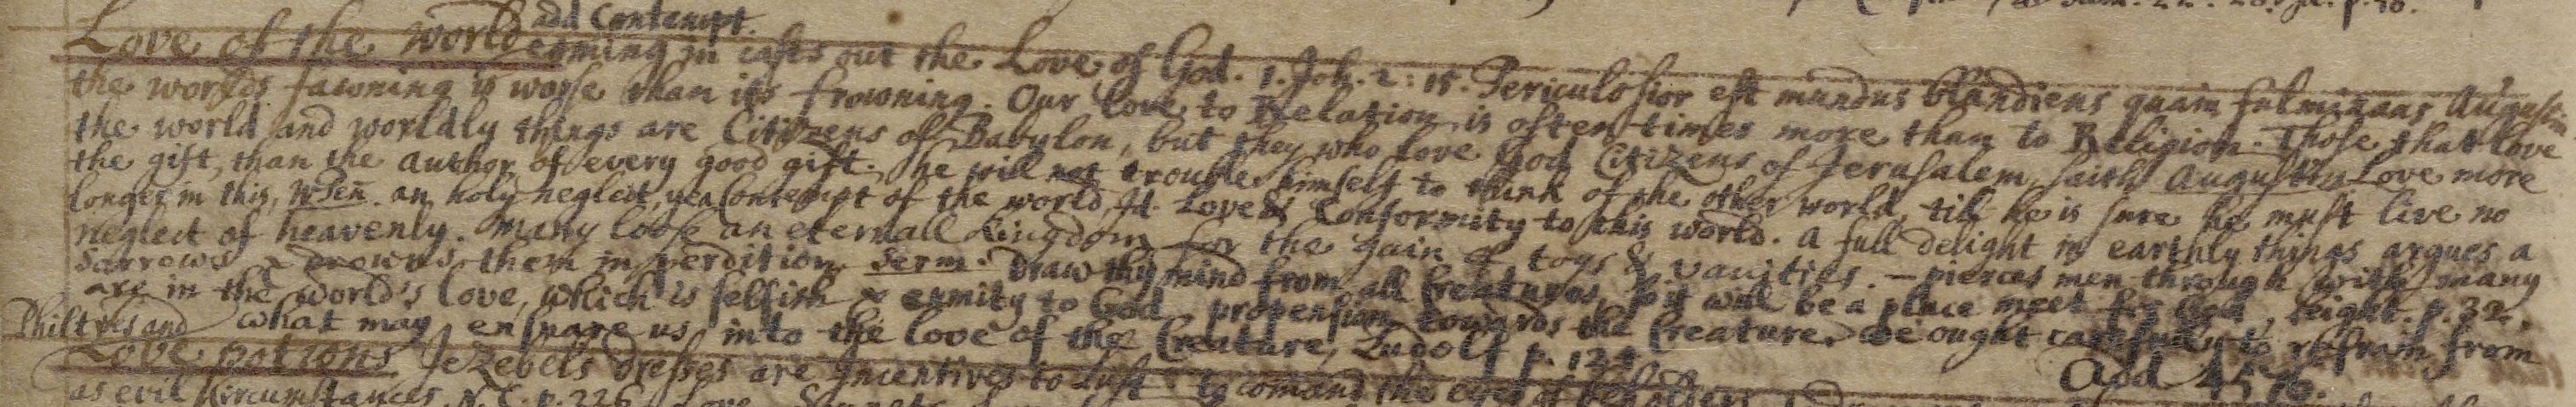 add Contempt.
Love of the world coming in casts out the Love of God. 1. Joh. 2: 15. Periculosior est mundus blandiens quam fulminans, Augustin
the worlds fawning is worse than its frowning. Our love to Relation is often times more than to Religion. Those that love
the world and worldly things are Citizens of Babylon, but they who love God Citizens of Jerusalem, saith Augustin. Love more
the gift, than the author of every good gift. he will not trouble himself to think of the other world, till he is sure he must live no
longer in this, W Pen. an holy neglect, yea Contempt of the world, Id. Love & Conformity to this world. a full delight in earthly things argues a
neglect of heavenly. many loose an eternall Kingdom for the gain of toys & vanities. – pierces men through with many
sorrows & drowns them in perdition Serm. Draw thy mind from all Creatures, so it will be a place meet for God, p. 32.
are in the world's love, which is selfish & enmity to God propension towards the Creature. we ought carefully to refrain from
what may ensnare us into the love of the Creature, Ludolf p. 124. Add
Philtres and
Love potions Jezebels dresses are Incentives to Lust to comand the eyes of beholders
as evil Circumstances, N. C. p. 226